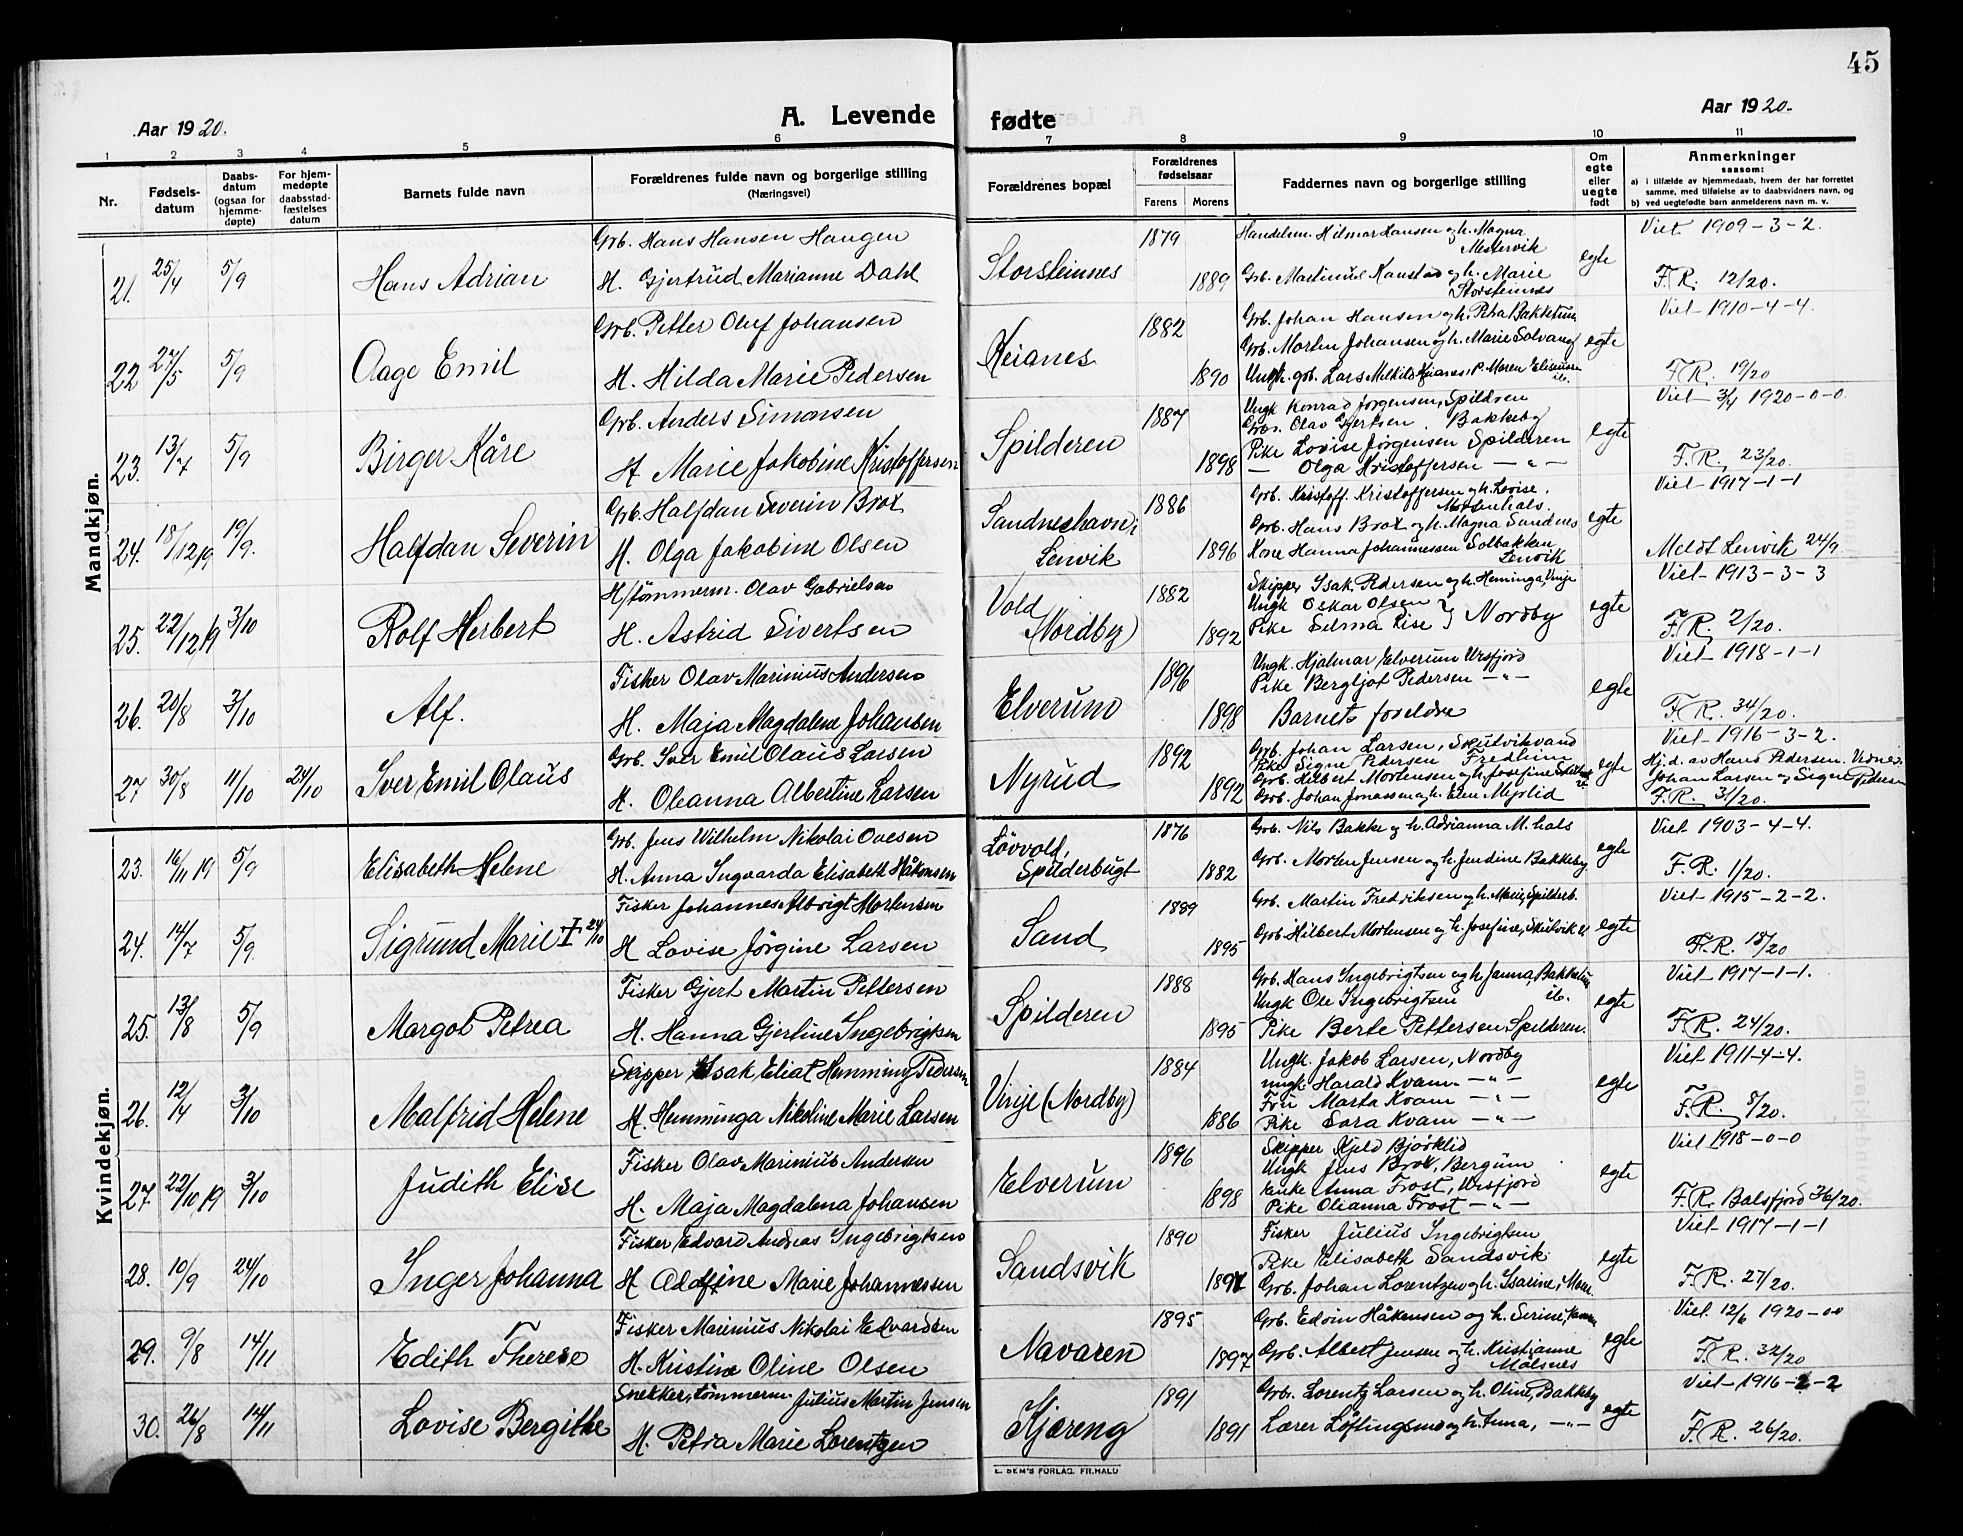 45
Aar 1920.
A. Levende fødte
Aar 1920.
1 2 3 4 5 6 7 8 9 10 11
Nr.
Fødsels-
datum
Daabs-
datum
(ogsaa for
hjemme-
døpte)
For hjem-
medøpte
daabsstad-
fæstelses
datum
Barnets fulde navn
Forældrenes fulde navn og borgerlige stilling
(Næringsvei)
Forældrenes bopæl
Forældrenes
fødselsaar
Farens Morens
Faddernes navn og borgerlige stilling
Om
egte
eller
uegte
født
Anmerkninger
saasom:
a) i tilfælde av hjemmedaab, hvem der har forrettet
samme, med tilføielse av to daabsvidners navn, og
b) ved uegtefødte barn anmelderens navn m. v.
Mandkjøn.
21. 25/4 5/9 Hans Adrian
Grb. Hans Hansen Haugen
H. Gjertrud Marianne Dahl
Storsteinnes 1879 1889
Handelsm. Hilmar Hansen og h. Magna
Mestervik
Grb. Martinus Kanstad og h. Marie
Storsteinnes
egte
Viet 1909-3-2.
F.R. 12/20.
22 27/5 5/9 Aage Emil
Grb. Petter Oluf Johansen
H. Hilda Marie Pedersen
Keianes 1882 1890
Grb. Johan Hansen og h. Petra Bakketun
Grb. Morten Johansen og h. Marie Solvang
Ungk. grb. Lars Keianes, P. Maren Eliseussen
ib.
egte
Viet 1910-4-4.
F.R. 19/20
23. 13/7 5/9 Birger Kåre
Grb. Anders Simonsen
H. Marie Jakobine Kristoffersen
Spilderen 1887 1898
Ungk Konrad Jørgensen, Spildren
Grbr. Olav Gjertsen. Bakkeby
Pike Lovise Jørgensen Spilderen
— Olga Kristoffersen — " —
egte
Viet 3/4 1920-0-0.
F.R. 23/20.
24. 18/12 19 19/9. Halfdan Severin
Grb. Halfdan Severin Brox
H. Olga Jakobine Olsen
Sandneshavn,
Lenvik 1886 1896
Grb. Kristoff. Kristoffersen og h. Lovise,
Mortenhals.
Grb. Hans Brox og h. Magna Sandnes
Kone Hanna Johannessen Solbakken
Lenvik
egte
Viet 1917-1-1
Meldt Lenvik 24/9
25. 22/12 19 3/10 Rolf Herbert
H/tømmerm. Olav Gabrielsen
H. Astrid Sivertsen
Vold
(Nordby) 1882 1892
Skipper Isak Pedersen og h. Heminga, Vinje
Ungk Oskar Olsen
Pike Selma Lise } Nordby
egte
Viet 1913-3-3
F.R. 2/20.
26. 20/8 3/10 Alf.
Fisker Olav Marinius Andersen
H. Maja Magdalene Johansen
Elverum 1896 1898
Ungk. Hjalmar Elverum Ursfjord
Pike Bergljot Pedersen — " —
Barnets foreldre
egte
Viet 1918-1-1
F.R. 34/20.
27 30/8 11/10 24/10 Iver Emil Olaus
Grb. Iver Emil Olaus Larsen
H. Oleanna Albertine Larsen
Nyrud 1892 1892
Grb. Johan Larsen, Skutvikvand
Pike Signe Pedersen Fredheim
Grb. Hilbert Mortensen og h. Josefine
Grb. Johan Jonassen og h. Elen Myrlid
egte
Viet 1916-3-2.
Hj.d. av Hans Pedersen.
Johan Larsen og Signe Pedersen
F.R. 31/20.
Kvindekjøn.
23. 16/11 19 5/9 Elisabeth Helene
Grb. Jens Wilhelm Nikolai Ovesen
H. Anna Ingvarda Elisabeth Håkonsen
Løvvold,
Spilderbugt 1876 1882
Grb. Nils Bakke og h. Adrianna M.hals
Grb. Morten Jensen og h. Jendine Bakkeby
egte
Viet 1903-4-4.
F.R. 1/20.
24. 14/7 5/9. Sigrund Marie † 24/10
Fisker Johannes Albrigt Mortensen
H Lovise Jørgine Larsen
Sand 1889 1895
Grb. Martin Fredriksen og h. Marie, Spilderb.
Grb. Hilbert Mortensen og h. Josefine, Skutvik v.
egte
Viet 1915-2-2.
F.R. 18/20
25. 13/8 5/9 Margot Petrea
Fisker Gjert Martin Pettersen
H. Hanna Gjertine Ingebrigtsen
Spilderen 1888 1895
Grb. Hans Ingebrigtsen og h. Janna, Bakketun
Ungk Ole Ingebrigtsen ib.
Pike Berte Pettersen Spilderen.
egte
Viet 1917-1-1.
F.R. 24/20.
26. 12/4 3/10 Malfrid Helene
Skipper Isak Eliat Hemming Pedersen
H. Hemminga Nikoline Marie Larsen
Vinje (Nordby) 1884 1886
Ungk. Jakob Larsen, Nordby
ungk. Harald Kvam — " —
Fru Marta Kvam — " —
Pike Sora Kvam — " —
egte
Viet 1911-4-4.
F.R. 8/20.
27. 22/10 19 3/10 Judith Elise
Fisker Olav Marinius Andersen
H. Maja Magdalena Johansen
Elverum 1896 1898
Skipper Kjeld Bjørklid
Ungk Jens Brox, Bergum
Enke Anna Frost, Ursfjord
Pike Olianna Frost — " —
egte
Viet 1918-0-0
F.R. Balsfjord 36/20.
28. 10/9 24/10 Inger Johanna
Fisker Edvard Andreas Ingebrigtsen
H Aldfine Marie Johannessen
Sandsvik 1890 1897
Fisker Julius Ingebrigtsen
Pike Elisabeth Sandsvik
Grb. Johan Lorentzen og h. Isarine,
egte
Viet 1917-1-1
F.R. 27/20.
29. 9/8 14/11 Edith Therese
Fisker Marinius Nikolai Edvardsen
H. Kristine Oline Olsen
Navaren 1895 1897
Grb. Edvin Håkensen og h. Serine,
Grb. Albert Jensen og h. Kristianne
Målsnes
egte
Viet 12/6 1920-00
F.R. 32/20
30. 26/8 14/11 Lovise Bergithe
Snekker, tømmerm. Julius Martin Jensen
H. Petra Marie Lorentzen
Kjæreng 1891 1891
Grb. Lorentz Larsen og h. Oline, Bakkeby
Lærer Løftingsmo og h. Anna, — " —
egte
Viet 1916-2-2
F.R. 26/20.
E. SEM'S FORLAG, FR.HALD